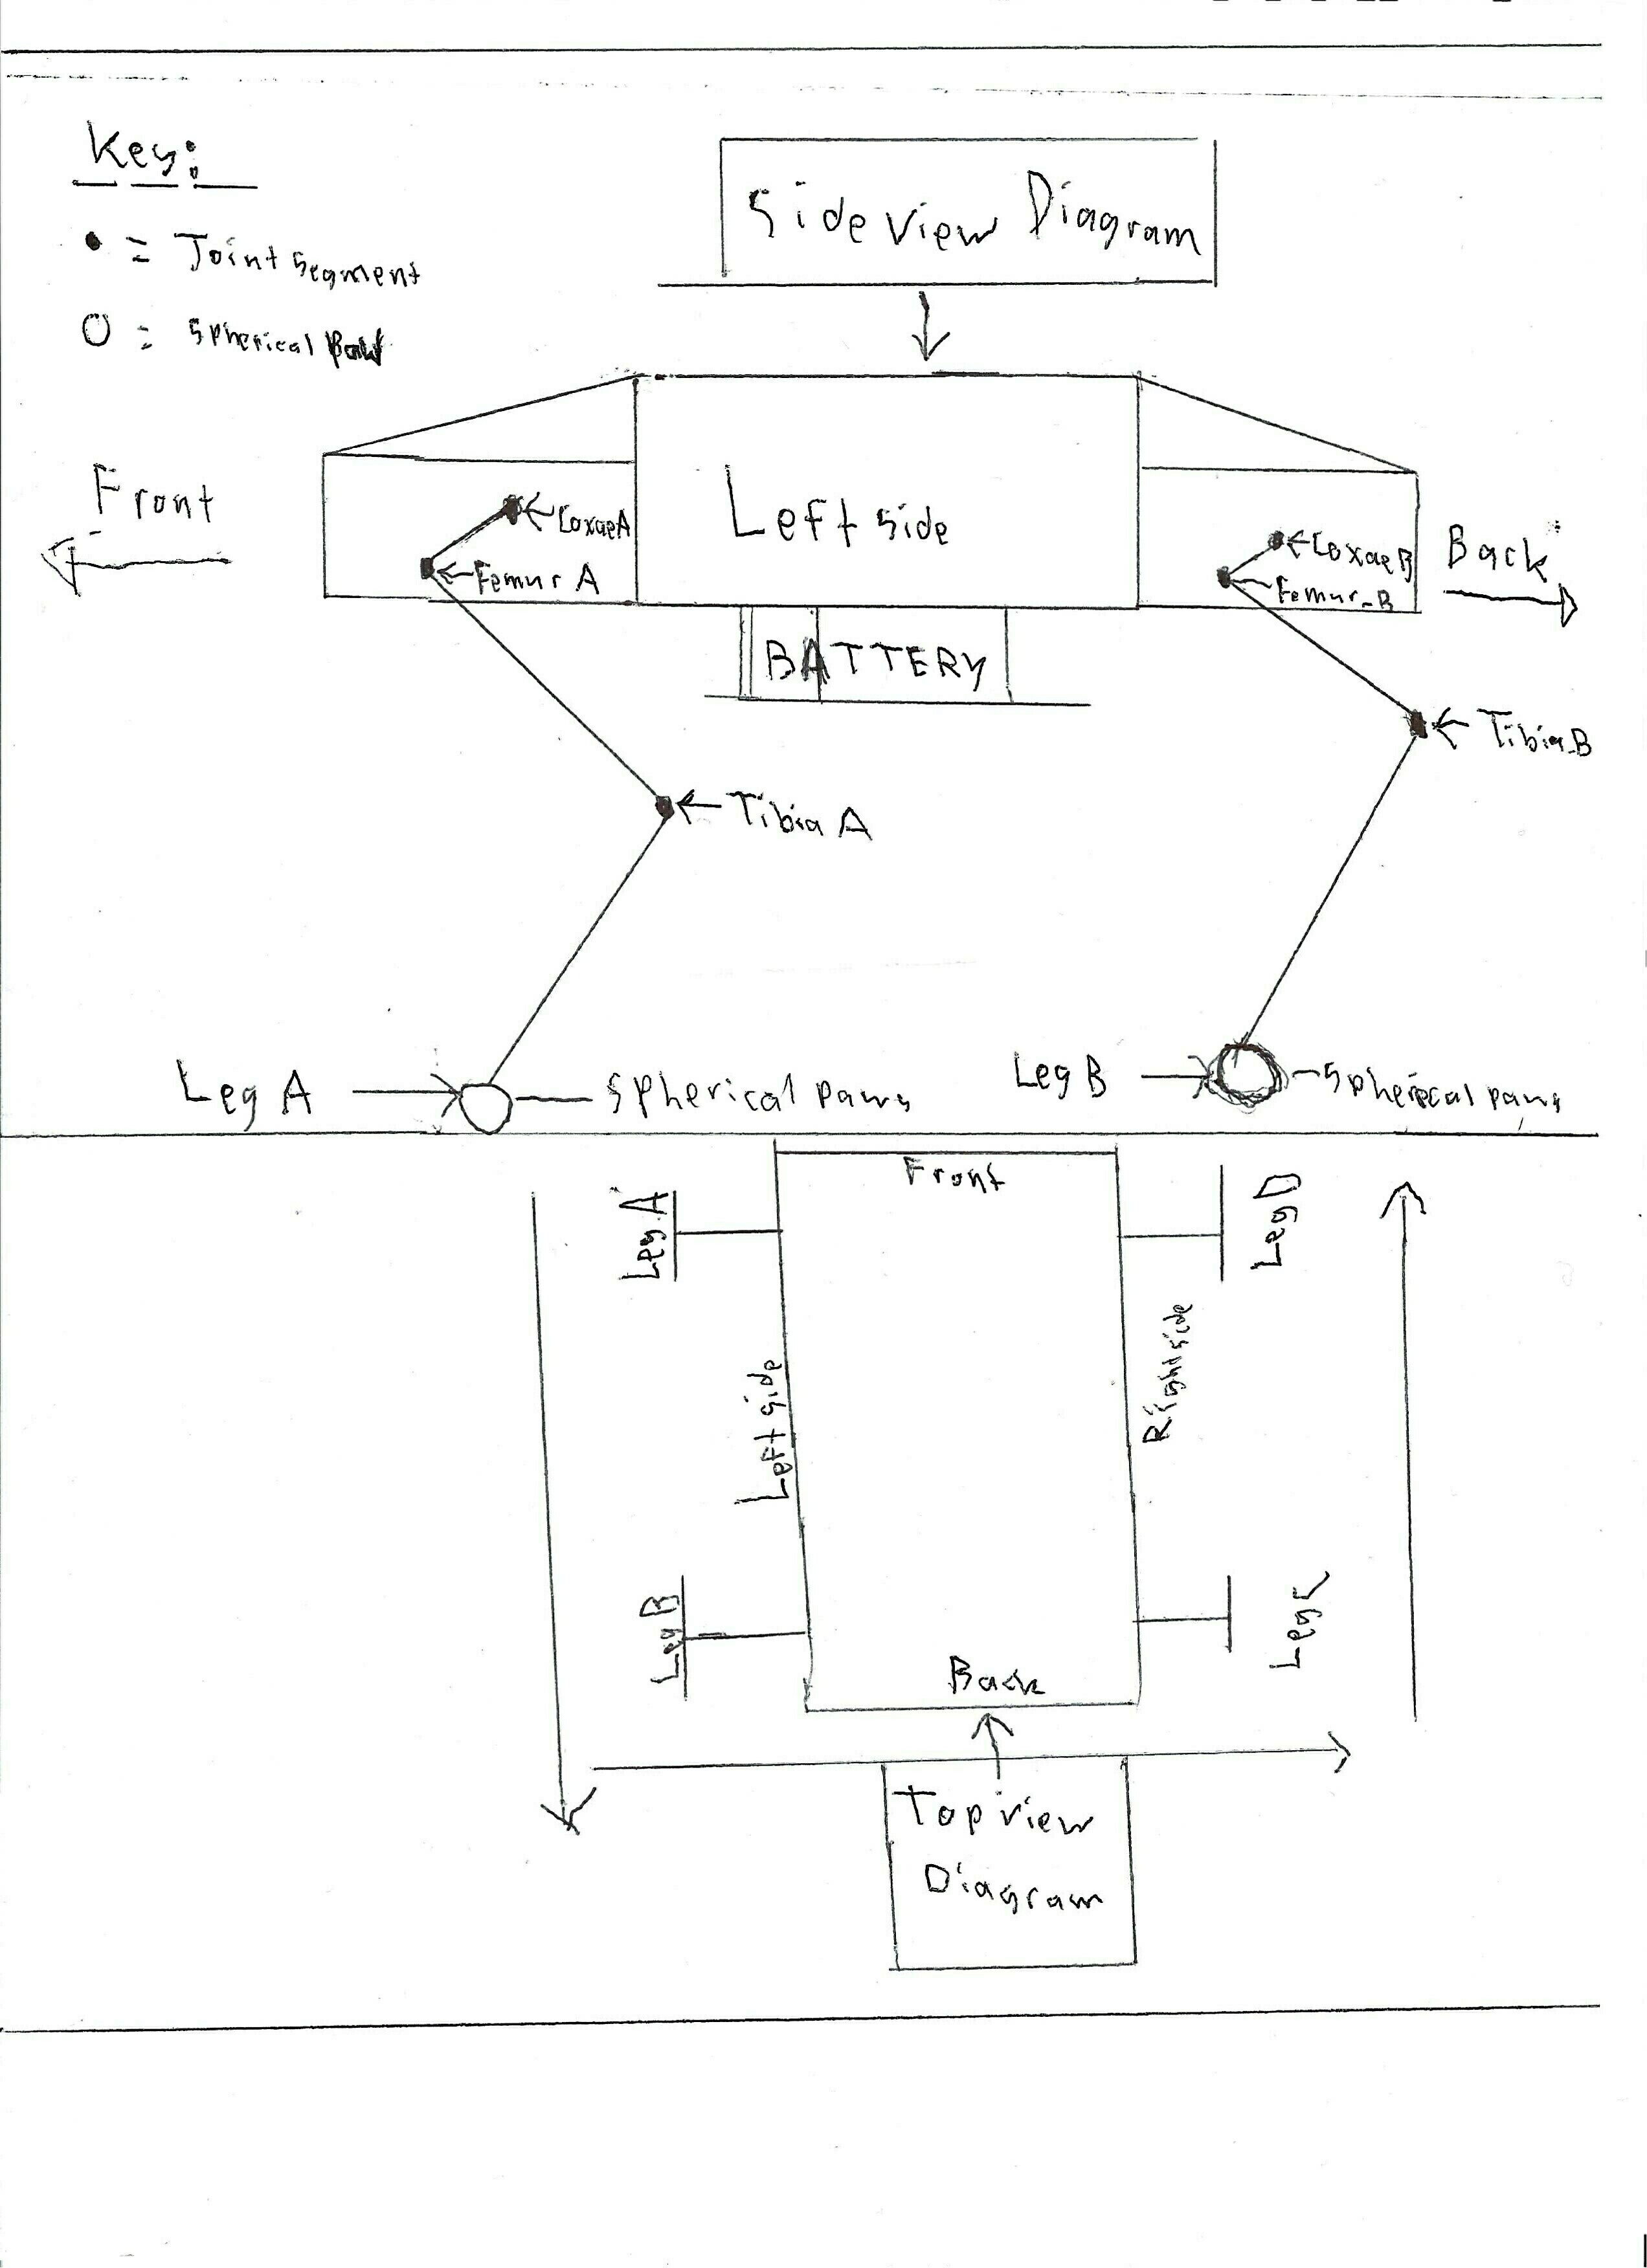 Key:
• = Joint segment
O = Spherical Paw
Side view Diagram
Front
Left side
Coxae A
Femur A
Coxae B
Femur-B
Back
BATTERY
Tibia A
Tibia B
Leg A
Spherical paws
Leg B
Spherical paws
Front
Leg A
Leg D
Left side
Right side
Leg B
Leg C
Back
Top view
Diagram